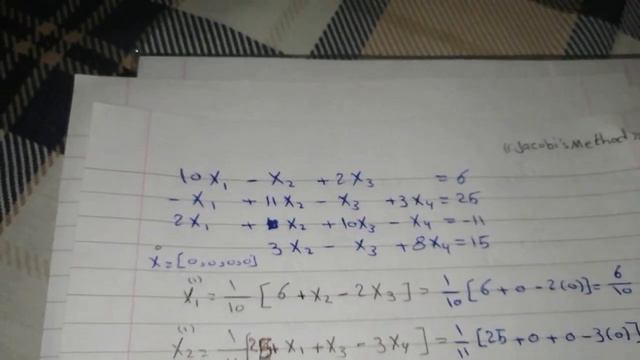 "Jacobi's Method"
10x₁ - x₂ + 2x₃ = 6
-x₁ + 11x₂ - x₃ + 3x₄ = 25
2x₁ + x₂ + 10x₃ - x₄ = -11
3x₂ - x₃ + 8x₄ = 15
x⁰ = [0,0,0,0]
x₁⁽¹⁾ = 1/10 [6 + x₂ - 2x₃] = 1/10 [6 + 0 - 2(0)] = 6/10
x₂⁽¹⁾ = 1/11 [25 + x₁ + x₃ - 3x₄] = 1/11 [25 + 0 + 0 - 3(0)]